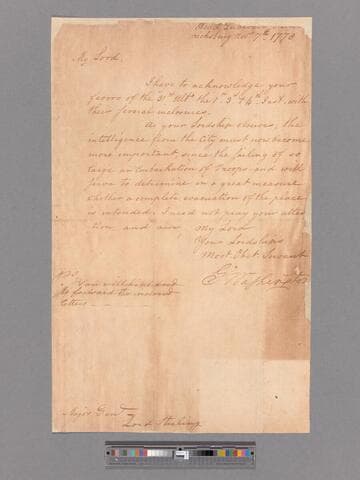 Head Quarters
Fredericksburg Nov. 7th 1778
My Lord,
I have to acknowledge your
favors of the 31st Ulto the 1st 3d & 4th Inst. with
their several inclosures.
As your Lordship observes, the
intelligence from the City must now become
more important, since the sailing of so
large an Embarkation of Troops and will
serve to determine in a great measure
whether a complete evacuation of the place
is intended. I need not pray your atten
tion, and am, My Lord
Your Lordships
Most Obet Servant
Go Washington
PS.
You will please send
to forward the inclosed
letters
Major Genl
Lord Sterling